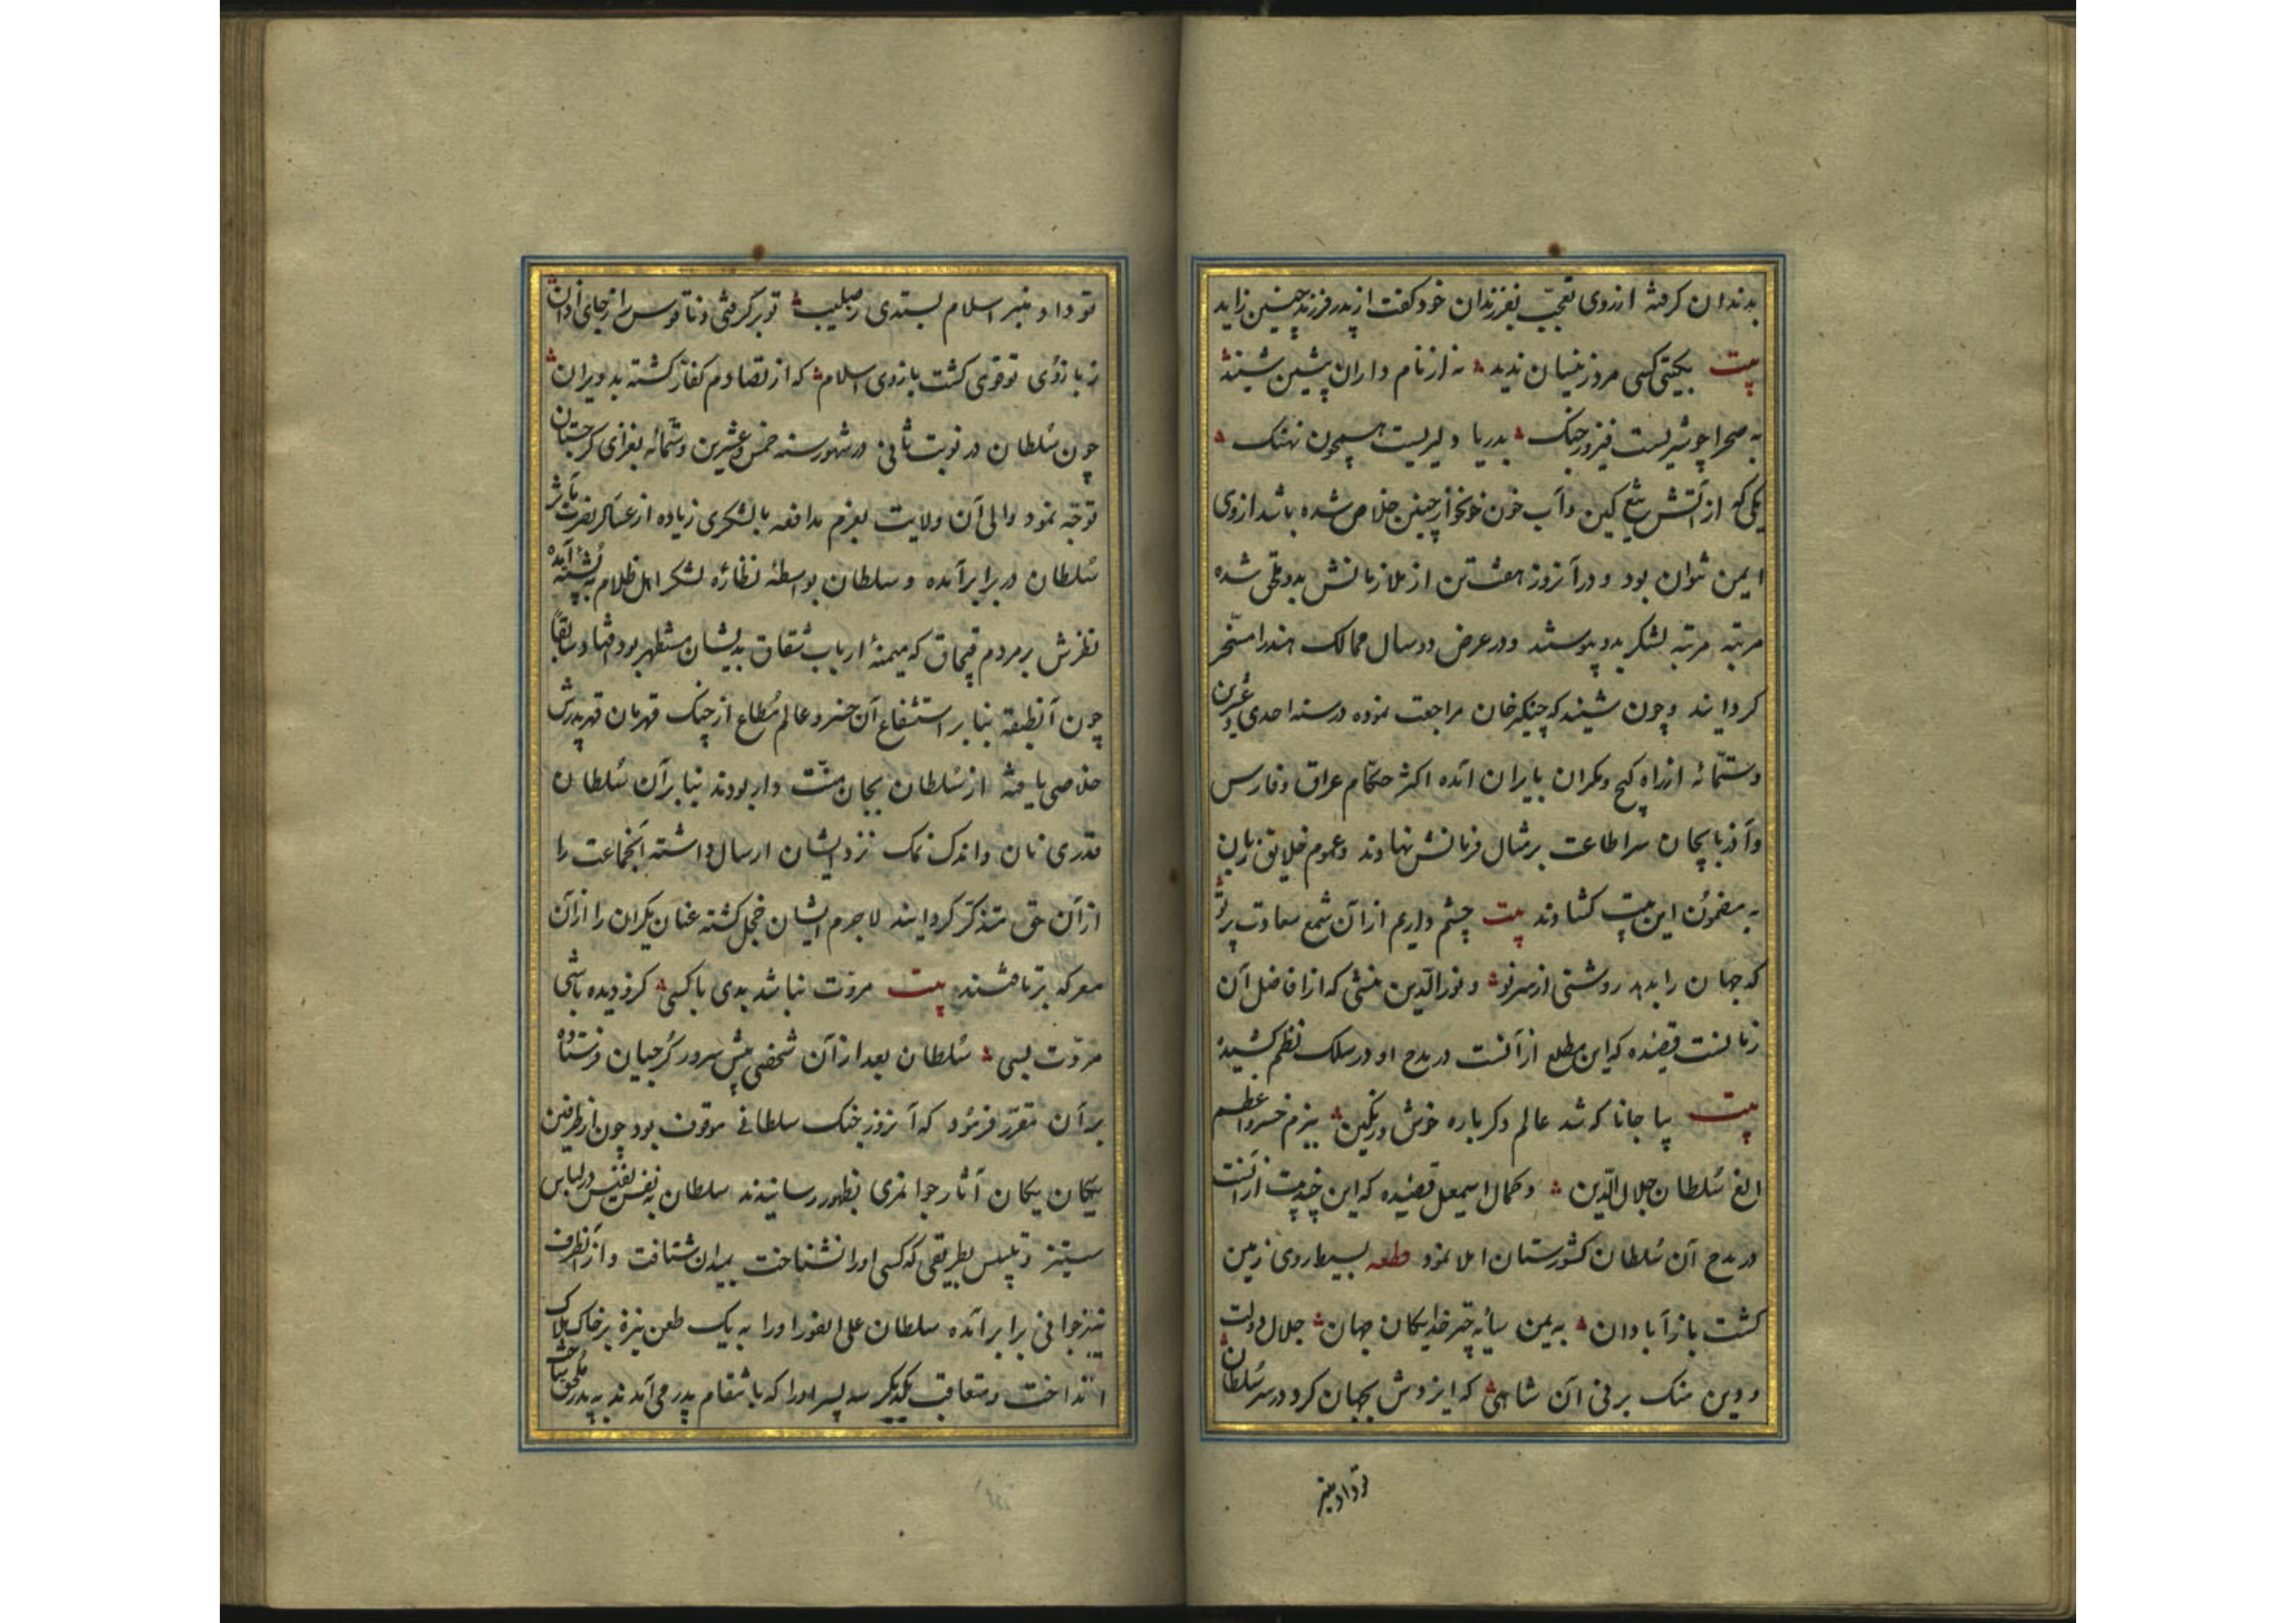 بدندان کرفته از روی تعجب بفرزندان خود کفت از پدر فرزند چنین زاید
بیت بکیتی کسی مرد زینسان ندید نه از نام داران پیشین شنید
به صحرا چو شیریست فیروز جنک بدریا دلیریست همچون نهنک
یکی که از آتش تیغ کین و آب خون خونخوار چنین خلاص شده باشد از وی
ایمن نتوان بود و در آنروز هفت تن از ملازمانش بدو ملحق شده
مرتبه مرتبه لشکر بدو پیوستند و در عرض دو سال ممالک هند را مسخر
کردانید و چون شنید که چنکیزخان مراجعت نموده در سنه احدی و عشرین
و ستمائه از راه کیج و مکران بایران آمده اکثر حکام عراق و فارس
و آذربایجان سر اطاعت بر مثال فرمانش نهادند و عموم خلایق زبان
به مضمون این بیت کشادند بیت چشم داریم از آن شمع سعادت پرتو
که جهان را بدهد روشنی از سر نو و نورالدین منشی که از افاضل آن
زمانست قصیده که این مطلع از آنست در مدح او در سلک نظم کشیده
بیت بیا جانا که شد عالم دکر باره خوش و رنکین بیزم خسرو اعظم
الغ سلطان جلال الدین و کمال اسمعیل قصیده که این چند بیت از آنست
در مدح آن سلطان کشورستان املا نمود قطعه بسیط روی زمین
کشت باز آبادان به یمن سایه چتر خدایکان جهان جلال دولت
و دین منک برنی آن شاهی که ایزدش بجهان کرد در سر سلطان
تو داد منبر
تو داد منبر اسلام بستدی ز صلیب تو برکرفتی و ناقوس را ز جای اذان
ز بازوی تو قوی کشت بازوی اسلام که از تصادم کفار کشته بد ویران
چون سلطان در نوبت ثانی در شهور سنه خمس و عشرین و ستمائه بغزای کرجستان
توجه نمود والی آن ولایت بعزم مدافعه با لشکری زیاده از عساکر نصرت مآثر
سلطان در برابر آمده و سلطان بواسطه نظاره لشکر اهل ظلام به پشته آمده
نظرش بر مردم قبچاق که میمنه ارباب شقاق بدیشان مستظهر بود افتاد و سابقا
چون آنطبقه بنا بر استشفاع آن خسرو عالم مطاع از چنک قهرمان قهر پدرش
خلاصی یافته از سلطان بجان منت دار بودند بنا بر آن سلطان
قدری نان و اندک نمک نزد ایشان ارسال داشته آنجماعت را
از آن حق متذکر کردانید لاجرم ایشان خجل کشته عنان یکران را از آن
معرکه برتافتند بیت مروت نباشد بدی با کسی کزو دیده باشی
مروت بسی سلطان بعد از آن شخصی پیش سرور کرجیان فرستاده
بر آن مقرر فرمود که آنروز جنک سلطانی موقوف بود چون از طرفین
یکان یکان آثار جوانمردی بظهور رسانیدند سلطان به نفس نفیس در لباس
ستیز و تلبیس بطریقی که کسی او را نشناخت بمیدان شتافت و از آنطرف
نیز جوانی برابر آمده سلطان علی الفور او را به یک طعن نیزه بر خاک هلاک
انداخت و متعاقب یکدیکر سه پسر او را که بانتقام پدر می آمدند به پدر ملحق ساخت